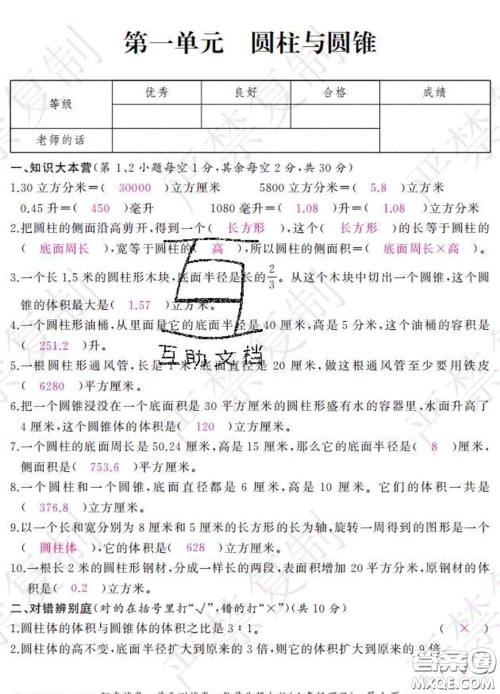 第一单元 圆柱与圆锥
等级 优秀 良好 合格 成绩
老师的话
一、知识大本营(第1、2小题每空1分,其余每空2分,共30分)
1.30立方分米=( 30000 )立方厘米 5800立方分米=( 5.8 )立方米
0.45升=( 450 )毫升 1080毫升=( 1.08 )升=( 1.08 )立方分米
2.把圆柱的侧面沿高剪开,得到一个( 长方形 ),这个( 长方形 )的长等于圆柱的
( 底面周长 ),宽等于圆柱的( 高 ),所以圆柱的侧面积=( 底面周长×高 )。
3.一个长1.5米的圆柱形木块,底面半径是长的2/3。从这个木块中切出一个圆锥,这个圆
锥的体积最大是( 1.57 )立方米。
4.一个圆柱形油桶,从里面量它的底面半径是40厘米,高是5分米,这个油桶的容积是
( 251.2 )升。
5.一根圆柱形通风管,长是1米,底面直径是20厘米,做这根通风管至少要用铁皮
( 6280 )平方厘米。
6.把一个圆锥浸没在一个底面积是30平方厘米的圆柱形盛有水的容器里,水面升高了
4厘米,这个圆锥体的体积是( 120 )立方厘米。
7.一个圆柱的底面周长是50.24厘米,高是15厘米,那么它的底面半径是( 8 )厘米,
侧面积是( 753.6 )平方厘米。
8.一个圆柱和一个圆锥,底面直径都是6厘米,高是10厘米。它们的体积一共是
( 376.8 )立方厘米。
9.以一个长和宽分别为8厘米和5厘米的长方形的长为轴,旋转一周得到的图形是一个
( 圆柱体 ),它的体积是( 628 )立方厘米。
10.一根长2米的圆柱形钢材,分成一样长的两段,表面积增加20平方分米,原钢材的体
积是( 0.2 )立方米。
二、对错辨别庭(对的在括号里打“√”,错的打“×”)(共10分)
1.圆柱体的体积与圆锥体的体积之比是3∶1。 ( × )
2.圆柱体的高不变,底面半径扩大到原来的3倍,则它的体积扩大到原来的9倍。
互助文档
严禁复制
答案圈